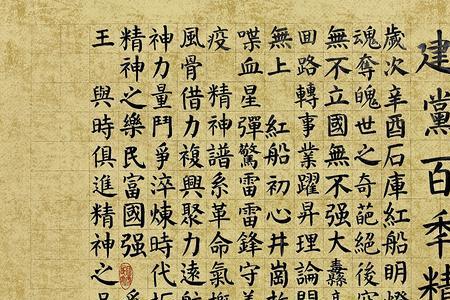 建黨百年精
歲次辛酉石庫紅船明
魂奪魄世之奇葩絕後
無不立國無不强大
回路轉事業躍昇理論
無上 紅船初心井崗
喋血星彈驚雷雷鋒守
疫 精神譜系革命氣
風骨借力復興聚力遠
神力量鬥爭淬煉時代
精神之樂民富國强
王 與時俱進精神之